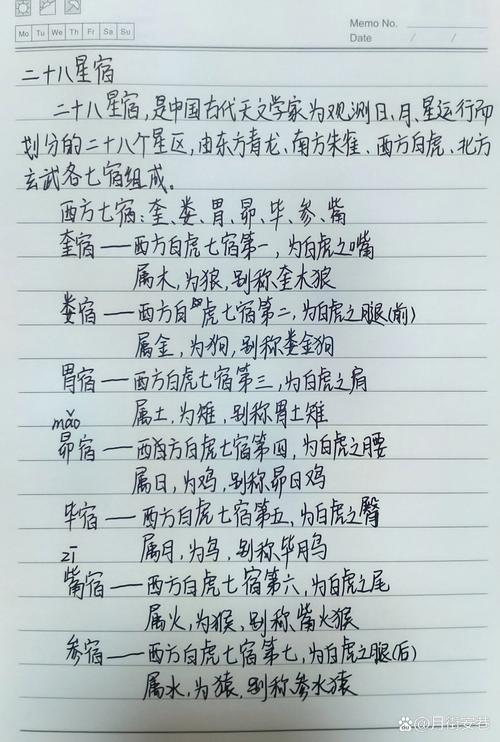 Memo No.
Mo Tu We Th Fr Sa Su
Date / /
二十八星宿
二十八星宿,是中国古代天文学家为观测日、月、星运行而
划分的二十八个星区,由东方青龙、南方朱雀、西方白虎、北方
玄武各七宿组成。
西方七宿:奎、娄、胃、昴、毕、参、觜
奎宿——西方白虎七宿第一,为白虎之嘴
属木,为狼,别称奎木狼
娄宿——西方白虎七宿第二,为白虎之腿(前)
属金,为狗,别称娄金狗
胃宿——西方白虎七宿第三,为白虎之肩
属土,为雉,别称胃土雉
mǎo
昴宿——西方白虎七宿第四,为白虎之腰
属日,为鸡,别称昴日鸡
毕宿——西方白虎七宿第五,为白虎之臀
属月,为乌,别称毕月乌
zī
觜宿——西方白虎七宿第六,为白虎之尾
属火,为猴,别称觜火猴
参宿——西方白虎七宿第七,为白虎之腿(后)
属水,为猿,别称参水猿
@月街安巷